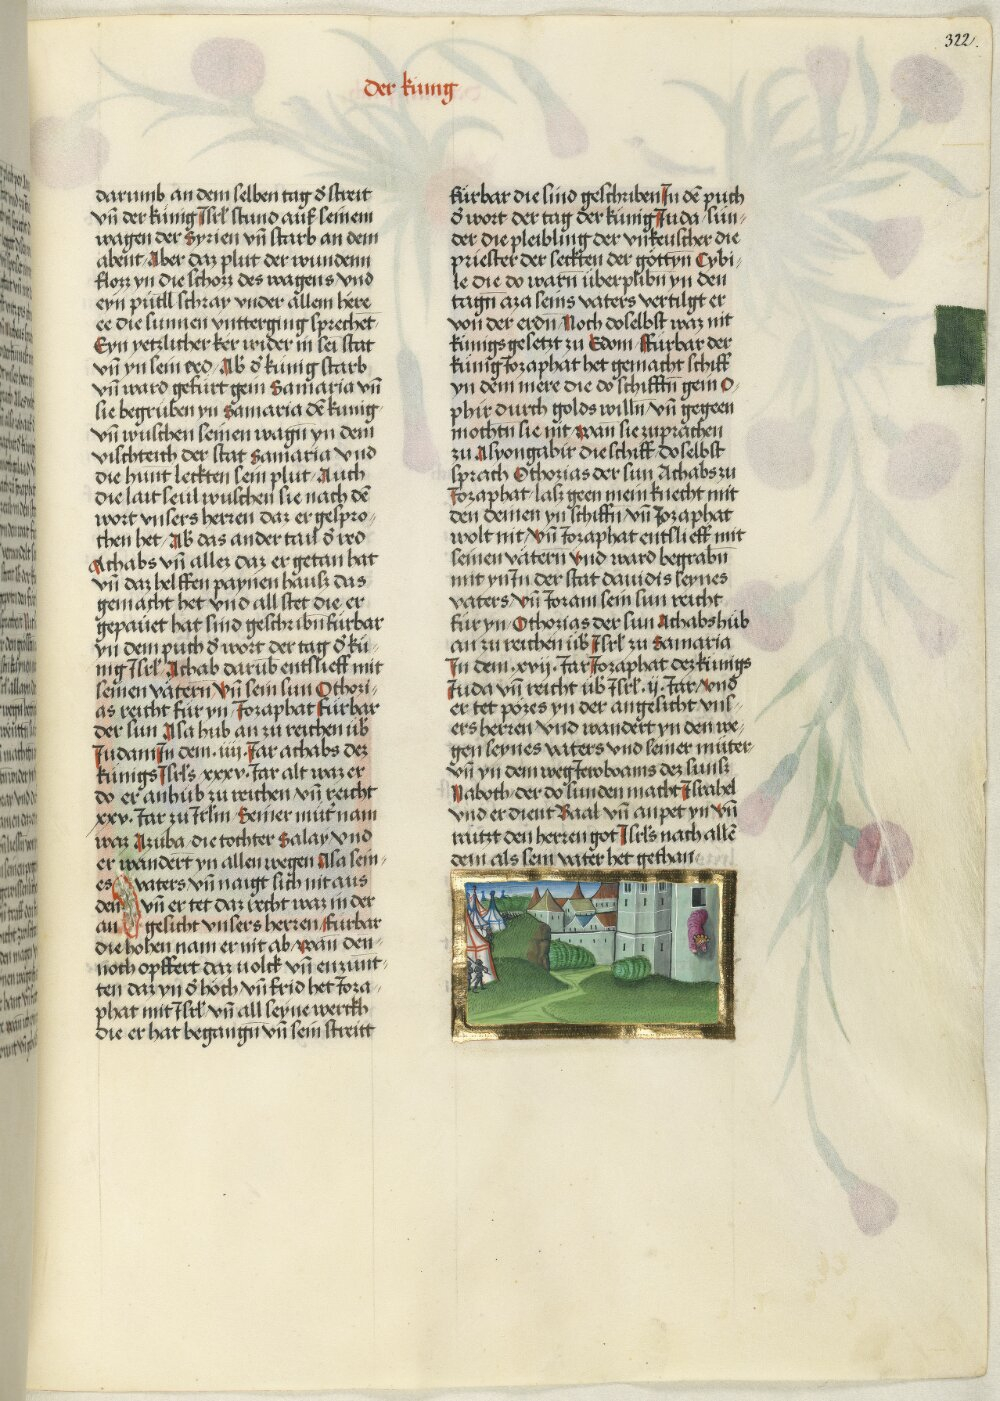 322.
der kung
darumb an dem selben tag d̉ streit
vn̄ der kunig Isrl̓ stund auf seinem
wagen der Syrien vn̄ starb an dem
abent Aber daz plut der wundenn
floz yn die schozz des wagens vnd
eyn putll schray vnder allem here
ee die sunnen vntterging sprechet
Eyn yetzlicher ker wider in sei stat
vn̄ yn sein erd Ab d̉ kunig starb
vn̄ ward gefurt gein Samaria vn̄
sie begruben yn Samaria dē kunig
vn̄ wuschen seinen wagn yn dem
vischteich der stat Samaria vnd
die hunt leckten sein plut Auch
die lait seul wuschen sie nach dē
wort vnsers herren daz er gespro
chen het Ab das ander tail d̉ red
Achabs vn̄ allez daz er getan hat
vn̄ daz helffen paynen hausz das
gemacht het vnd all stet die er
gepauet hat sind geschribn furbar
yn dem puch d̉ wort der tag d̉ ku
nig Isrl̓ Achab darub entslieff mit
seinen vätern vn̄ sein sun Othori
as reicht fur yn Jozaphat furbar
der sun Asa hub an zu reichen ub̉
Judam In dem .iiii. Jar achabs dez
kunigs Isrl̓s xxxv. Jar alt waz er
do er anhub zu reichen vn̄ reicht
xxv. Jar zu Jrl̓m Seiner mut̓ nam
waz Azuba die tochter Salay vnd
er wandert yn allen wegen Asa sein
es vaters vn̄ naigt sich nit aus
den vn̄ er tet daz recht waz in der
an gesicht vnsers herren furbar
die hohen nam er nit ab wan den
noch opffert daz volck vn̄ enzunt
ten daz yn d̉ höch vn̄ frid het Joza
phat mit Isrl̓ vn̄ all seyne werckh
die er hat begangn̄ vn̄ sein streitt
furbar die sind geschriben In dē puch
d̉ wort der tag der kunig Juda sun
der die pleibling der vnkeuscher die
priester der seckten der göttyn Cybi
le die do warn uberplibn yn den
tagn aza seins vaters vertilgt er
von der erdn Noch doselbst waz nit
kunigs gesetzt zu Edom Furbar der
kunig Jozaphat het gemacht schiff
yn dem mere die do schifftn̄ gein O
phir durch golds willn vn̄ gegeen
mochtn sie nit wan sie zuprachen
zu Asyongabir die schiff doselbst
sprach Othorias der sun Achabs zu
Jozaphat lasz geen mein knecht mit
den deinen yn schiffn vn̄ Jozaphat
wolt nit vn̄ Jozaphat entslieff mit
seinen vätern vnd ward begrabn̄
mit yn In der stat dauidis seynes
vaters vn̄ Joram sein sun reicht
fur yn Othorias der sun Achabs hub
an zu reichen ub̉ Isrl̓ zu Samaria
In dem .xvij. Jar Jozaphat dez kunigs
Juda vn̄ reicht ub̉ Isrl̓ .ij. Jar vnd
er tet pözes yn der angesicht vns
ers herren vnd wandert yn den we
gen seynes vaters vnd seiner muter
vn̄ yn dem weg Jeroboams dez suns
Naboth der do sunden macht Israhel
vnd er dient Baal vn̄ anpet yn vn̄
raitzt den herren got Isrl̓s nach allē
dem als sein vater het gethan